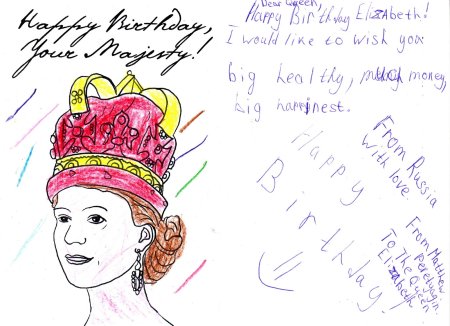 Happy Birthday,
Your Majesty!
Dear Queen,
Happy Birthday Elizabeth!
I would like to wish you
big healthy, much money,
big happinest.
Happy
Birthday
From Russia
with love
From Matthew
Perelyagin.
To The Queen
Elizabeth